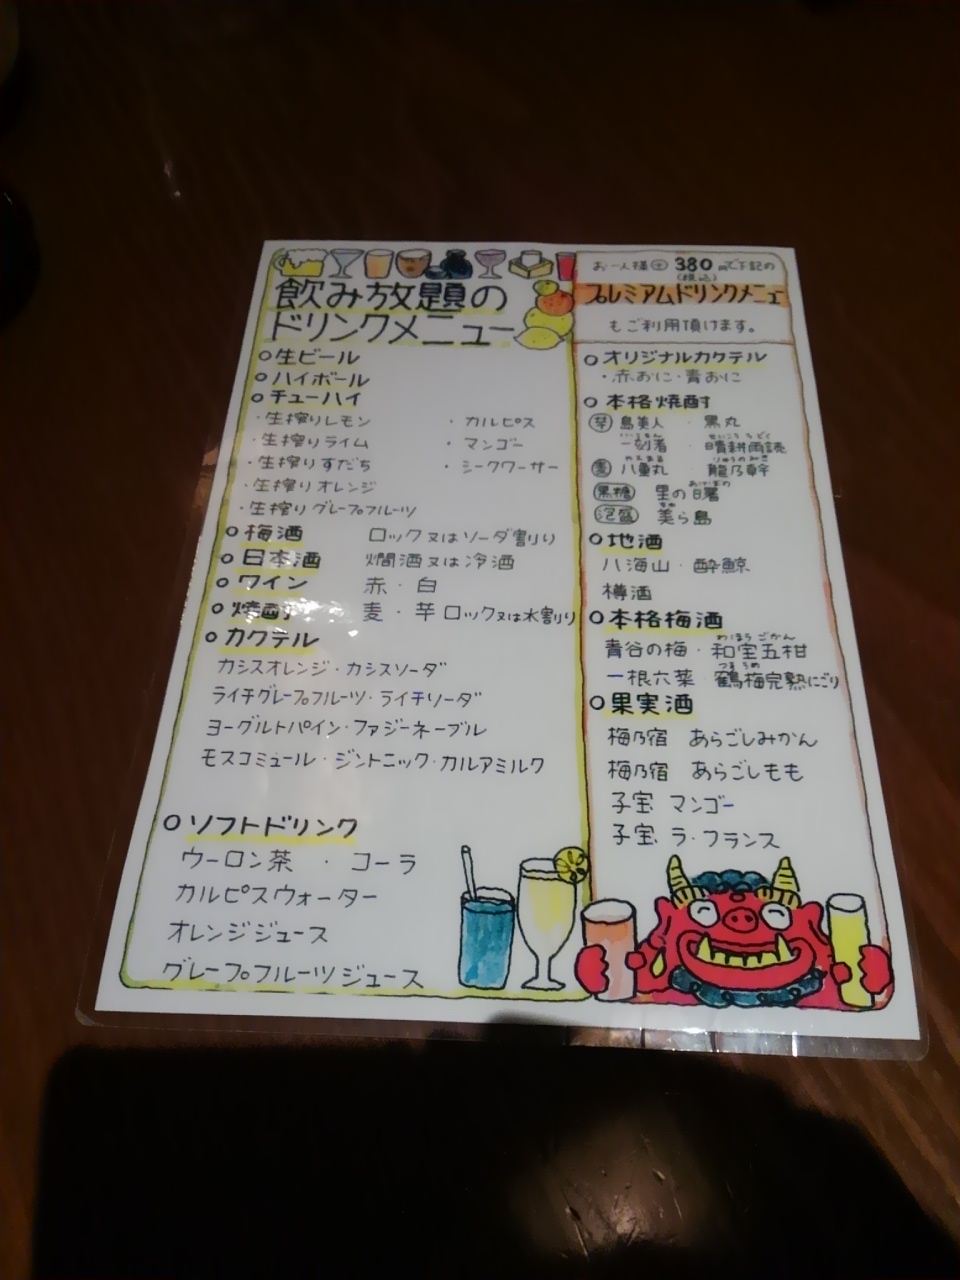 飲み放題の
ドリンクメニュー
○生ビール
○ハイボール
○チューハイ
・生搾りレモン ・カルピス
・生搾りライム ・マンゴー
・生搾りすだち ・シークワーサー
・生搾りオレンジ
・生搾りグレープフルーツ
○梅酒 ロック又はソーダ割り
○日本酒 燗酒又は冷酒
○ワイン 赤・白
○焼酎 麦・芋 ロック又は水割り
○カクテル
カシスオレンジ・カシスソーダ
ライチグレープフルーツ・ライチソーダ
ヨーグルトパイン・ファジーネーブル
モスコミュール・ジントニック・カルアミルク
○ソフトドリンク
ウーロン茶 ・ コーラ
カルピスウォーター
オレンジジュース
グレープフルーツジュース
お一人様＋380円で下記の
(税込)
プレミアムドリンクメニュー
もご利用頂けます。
○オリジナルカクテル
・赤おに・青おに
○本格焼酎
芋 島美人 ・ 黒丸
一刻者 ・ 晴耕雨読
麦 八重丸 ・ 龍乃幹
黒糖 里の曙
泡盛 美ら島
○地酒
八海山・酔鯨
樽酒
○本格梅酒
わほうごかん
青谷の梅・和宝五柑
つるうめ
一根六菜 鶴梅完熟にごり
○果実酒
梅乃宿 あらごしみかん
梅乃宿 あらごしもも
子宝 マンゴー
子宝 ラ・フランス